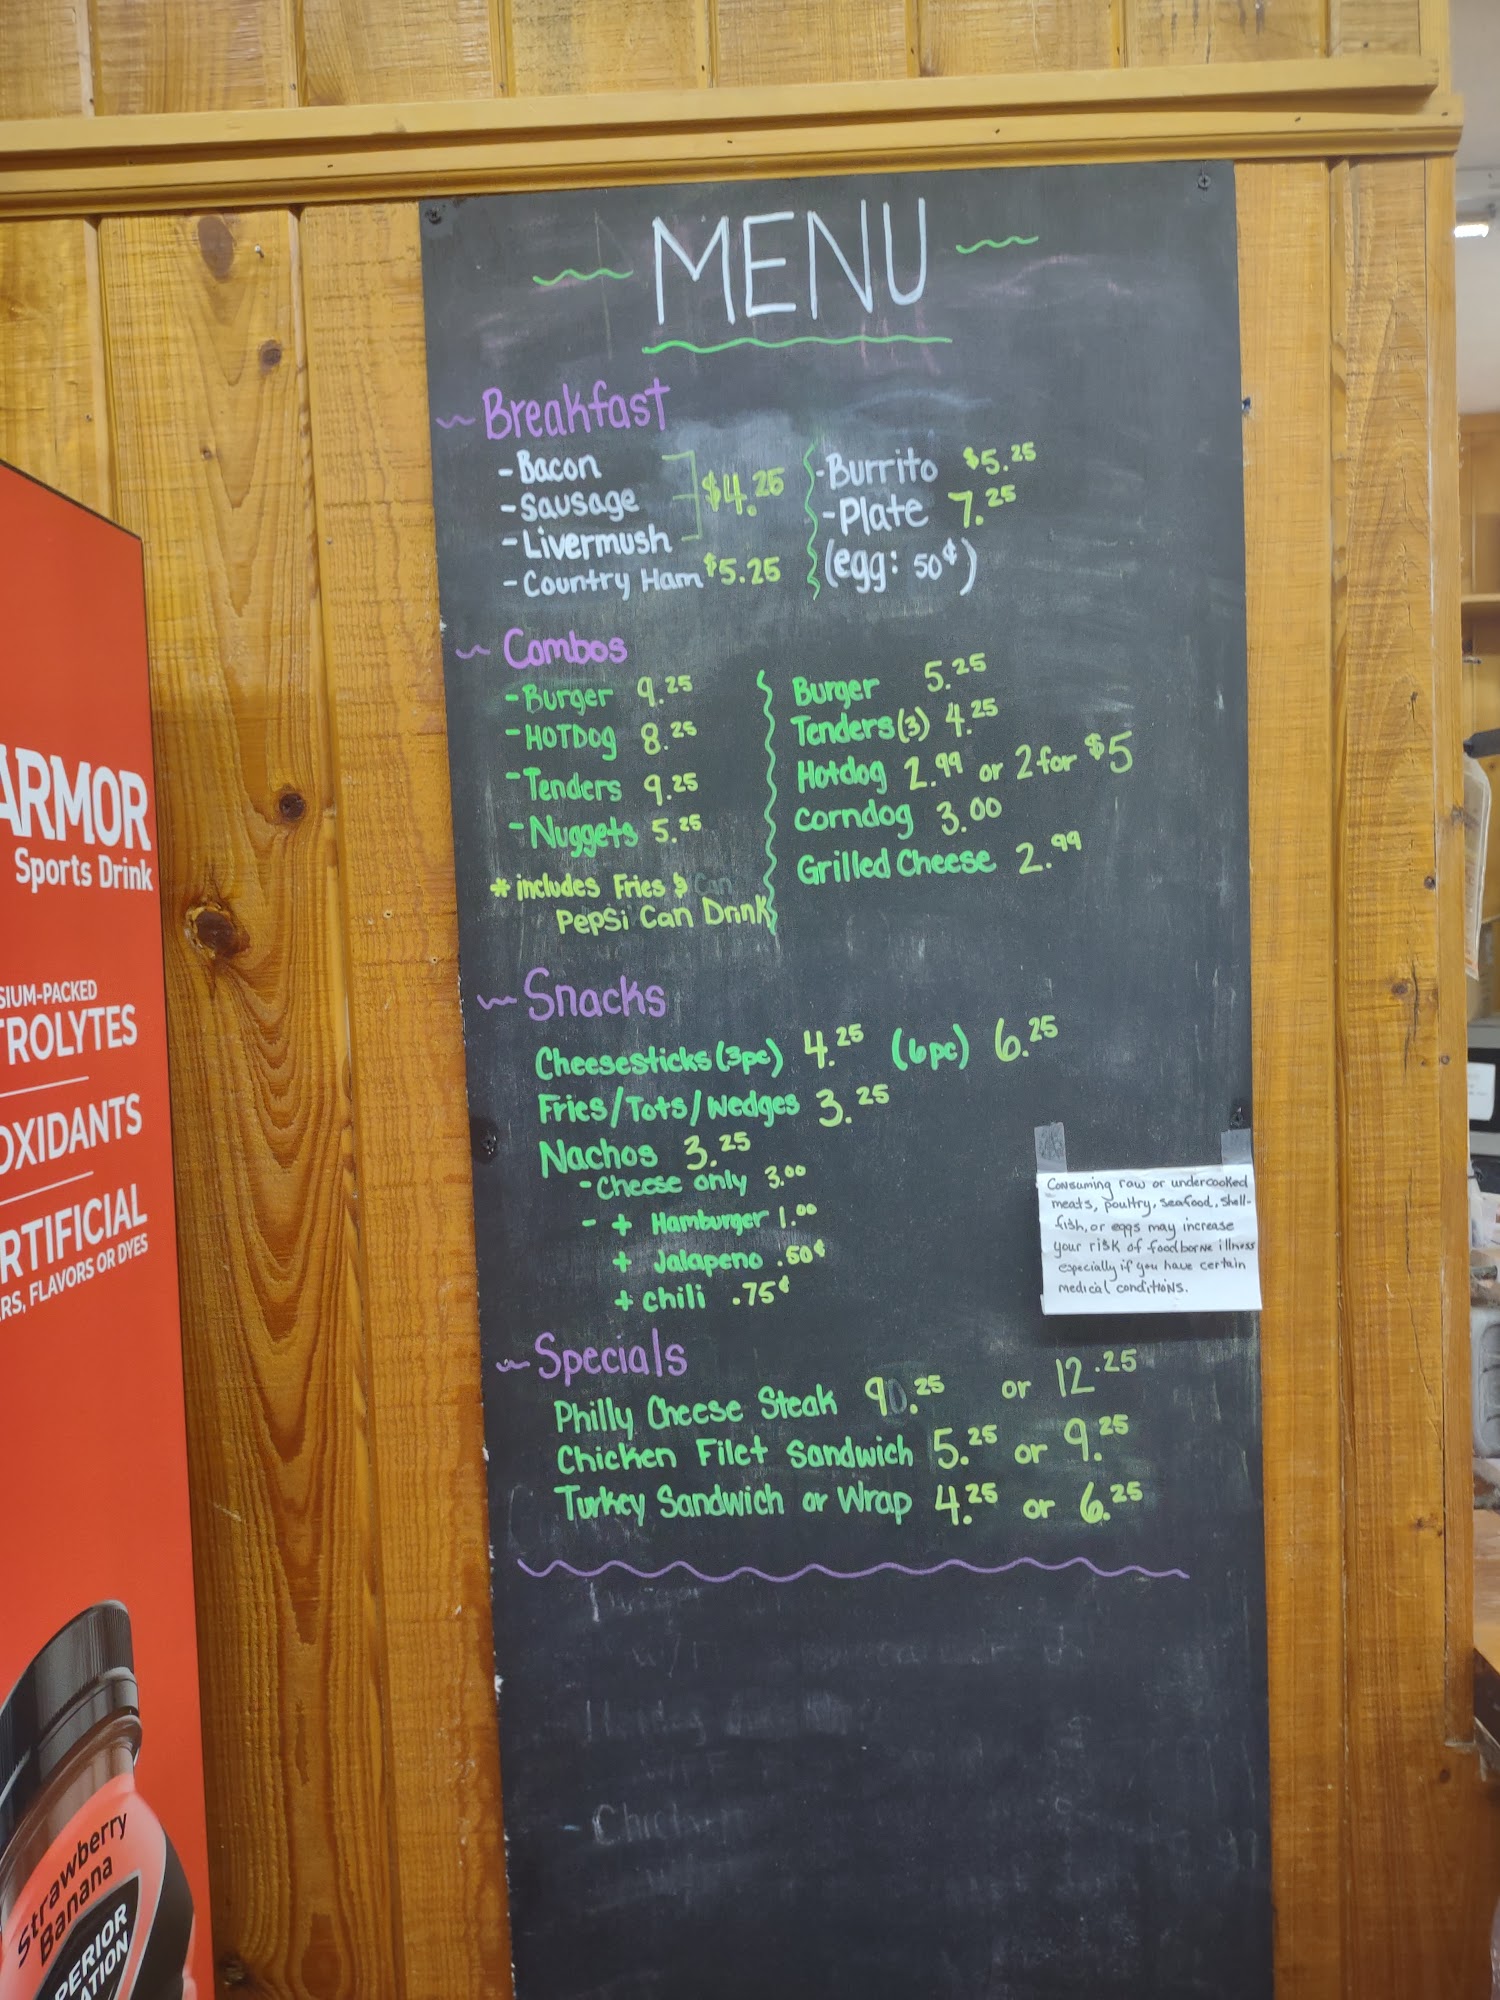 MENU
Breakfast
- Bacon
- Sausage
- Livermush
$4.25
- Country Ham $5.25
- Burrito $5.25
- Plate 7.25
(egg: 50¢)
Combos
- Burger 9.25
- HOTDOG 8.25
- Tenders 9.25
- Nuggets 5.25
* includes Fries & Can
Pepsi Can Drink
Burger 5.25
Tenders (3) 4.25
Hotdog 2.99 or 2 for $5
Corndog 3.00
Grilled Cheese 2.99
Snacks
Cheesesticks (3pc) 4.25 (6pc) 6.25
Fries/Tots/Wedges 3.25
Nachos 3.25
- Cheese only 3.00
- + Hamburger 1.00
+ Jalapeno .50¢
+ chili .75¢
Consuming raw or undercooked
meats, poultry, seafood, shell-
fish, or eggs may increase
your risk of foodborne illness
especially if you have certain
medical conditions.
Specials
Philly Cheese Steak 9.25 or 12.25
Chicken Filet Sandwich 5.25 or 9.25
Turkey Sandwich or Wrap 4.25 or 6.25
ARMOR
Sports Drink
SIUM-PACKED
TROLYTES
OXIDANTS
RTIFICIAL
RS, FLAVORS OR DYES
Strawberry
Banana
PERIOR
ATION